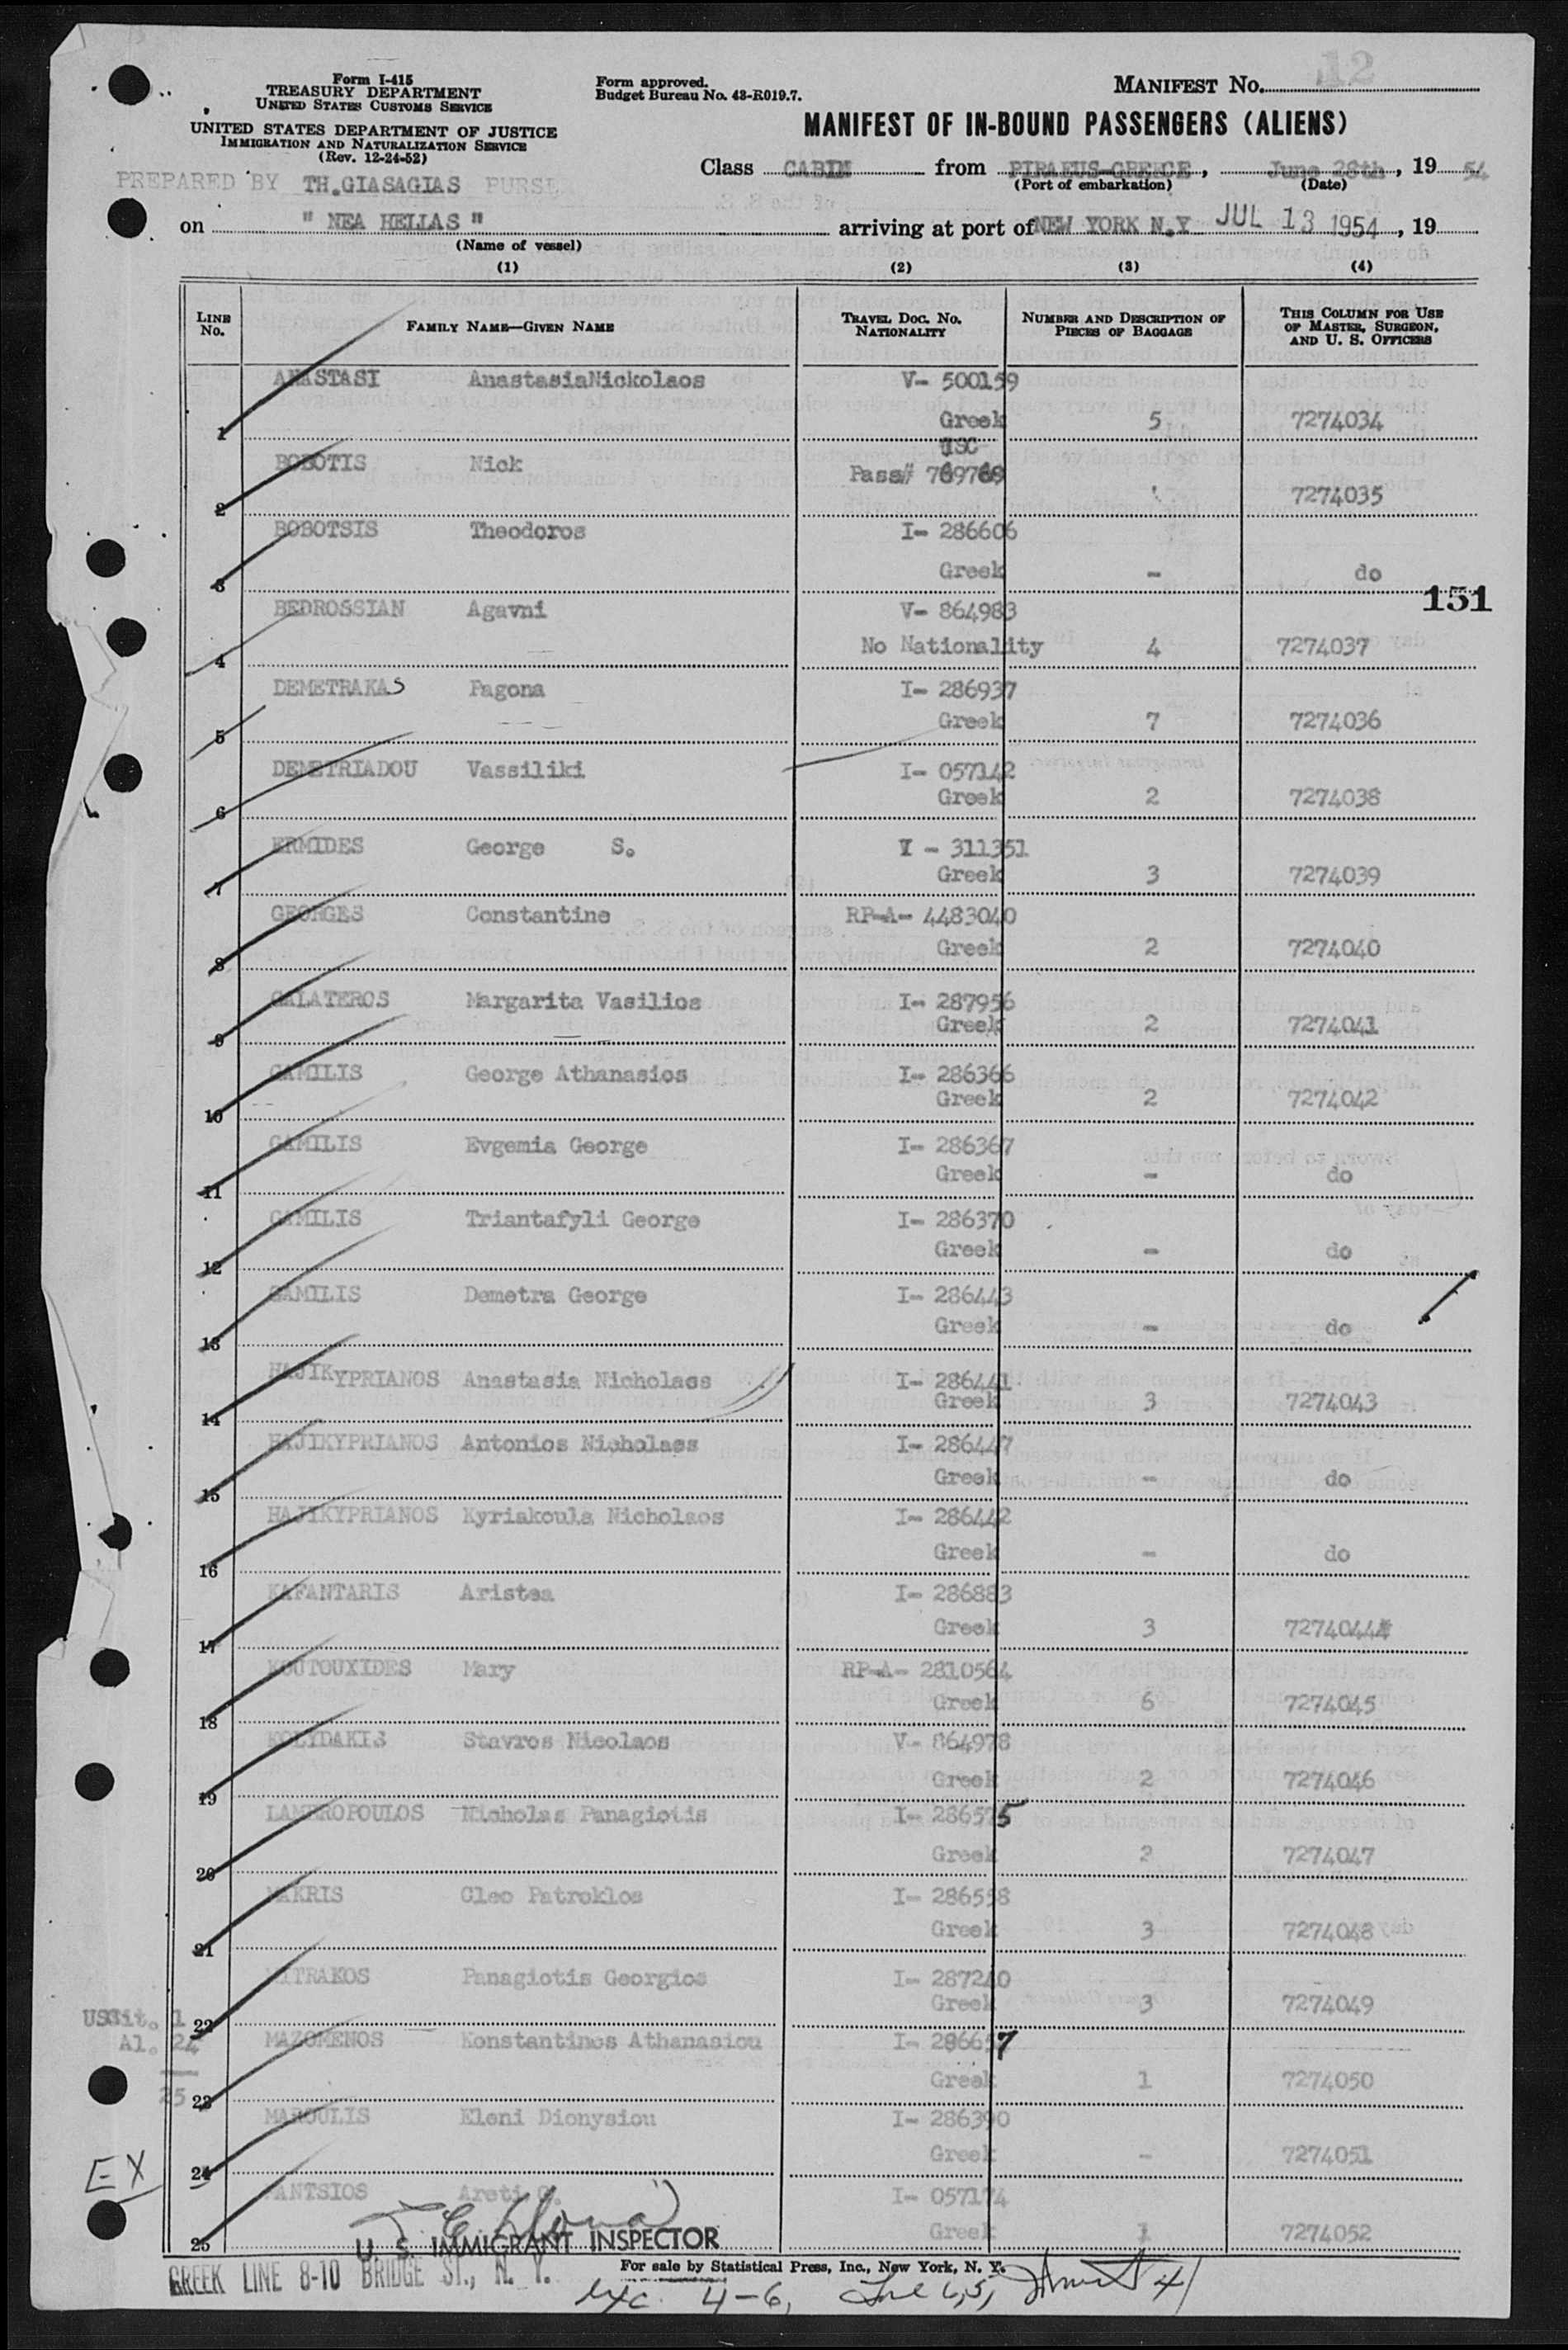 12
Form I-415
TREASURY DEPARTMENT
UNITED STATES CUSTOMS SERVICE
UNITED STATES DEPARTMENT OF JUSTICE
IMMIGRATION AND NATURALIZATION SERVICE
(Rev. 12-24-52)
Form approved.
Budget Bureau No. 43-R019.7.
MANIFEST NO.
MANIFEST OF IN-BOUND PASSENGERS (ALIENS)
PREPARED BY TH.GIASAGIAS PURSE
Class CABIN from PIRAEUS-GREECE, June 28th, 19 54
(Port of embarkation) (Date)
on " NEA HELLAS " arriving at port of NEW YORK N.Y JUL 13 1954, 19
(Name of vessel)
(1) (2) (3) (4)
LINE NO. FAMILY NAME—GIVEN NAME TRAVEL DOC. NO. NATIONALITY NUMBER AND DESCRIPTION OF PIECES OF BAGGAGE THIS COLUMN FOR USE OF MASTER, SURGEON, AND U. S. OFFICERS
ANASTASI AnastasiaNickolaos V- 500159
1 Greek 5 7274034
USC
BOBOTIS Nick Pass# 769769
2 7274035
BOBOTSIS Theodoros I- 286606
3 Greek - do
151
BEDROSSIAN Agavni V- 864983
4 No Nationality 4 7274037
DEMETRAKAS Pagona I- 286937
5 Greek 7 7274036
DEMETRIADOU Vassiliki I- 057142
6 Greek 2 7274038
ERMIDES George S. I - 311351
7 Greek 3 7274039
GEORGES Constantine RP-A- 4483040
8 Greek 2 7274040
GALATEROS Margarita Vasilios I- 287956
9 Greek 2 7274041
GAMILIS George Athanasios I- 286366
10 Greek 2 7274042
GAMILIS Evgemia George I- 286367
11 Greek - do
GAMILIS Triantafyli George I- 286370
12 Greek - do
GAMILIS Demetra George I- 286443
13 Greek - do
HAJIKYPRIANOS Anastasia Nicholaos I- 286441
14 Greek 3 7274043
HAJIKYPRIANOS Antonios Nicholaos I- 286447
15 Greek - do
HAJIKYPRIANOS Kyriakoula Nicholaos I- 286442
16 Greek - do
KAFANTARIS Aristea I- 286883
17 Greek 3 7274044
KOUTOUXIDES Mary RP-A- 2810564
18 Greek 6 7274045
KOLYDAKIS Stavros Nicolaos V- 864978
19 Greek 2 7274046
LAMBROPOULOS Nicholas Panagiotis I- 286575
20 Greek 2 7274047
MAKRIS Cleo Patroklos I- 286558
21 Greek 3 7274048
MITRAKOS Panagiotis Georgios I- 287240
22 Greek 3 7274049
UScit. 1
Al. 24
25
MAZOMENOS Konstantinos Athanasiou I- 286657
23 Greek 1 7274050
MAROULIS Eleni Dionysiou I- 286390
24 Greek - 7274051
EX
ANTSIOS Areti G. I- 057174
25 Greek 1 7274052
U. S. IMMIGRANT INSPECTOR
GREEK LINE 8-10 BRIDGE ST., N. Y.
For sale by Statistical Press, Inc., New York, N. Y.
exc. 4-6,